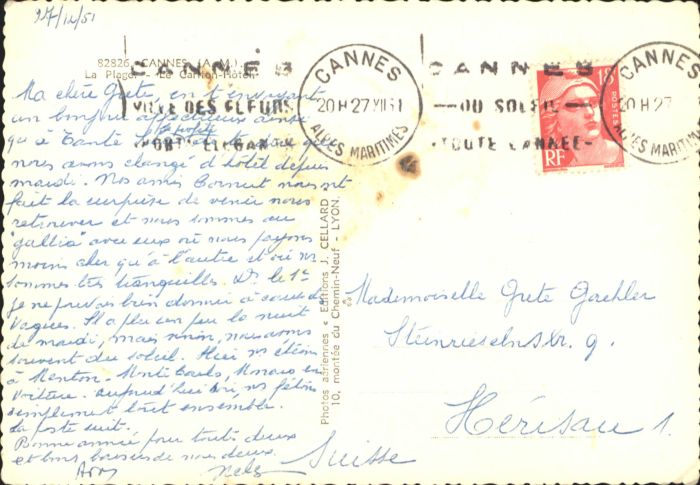 27/12/51
82826. CANNES (A.-M.)
La Plage - Le Carlton-Hôtel
CANNES
VILLE DES FLEURS
CANNES
20 H 27 XII 51
ALPES MARITIMES
CANNES
DU SOLEIL
TOUTE L'ANNEE
CANNES
20 H 27
ALPES MARITIMES
POSTES
RF
Ma chère Grete, en t'envoyant
un bonjour affectueux ainsi
qu'à Tante je profite te dire que
nous avons changé d'hôtel depuis
mardi. Nos amis Cornut nous ont
fait la surprise de venir nous
retrouver et nous sommes au
"Gallia" avec eux où nous payons
moins cher qu'à l'autre et où ns
sommes très tranquilles. Ds le 1er
je ne pouvais bien dormir à cause des
vagues. Il a plu un peu la nuit
de mardi, mais sinon, nous avons
souvent du soleil. Hier ns étions
à Menton - Monte Carlo, Monaco en
voiture. Aujourd'hui ns fêtons
simplement tout ensemble.
La poste suit.
Bonne année pour toutes deux
et bons baisers de nous deux.
Nelly
Photos aériennes « Editions J. CELLARD »
10, montée du Chemin-Neuf - LYON.
Mademoiselle Grete Gaehler
Steinrieselnstr. 9.
Hérisau 1.
Suisse